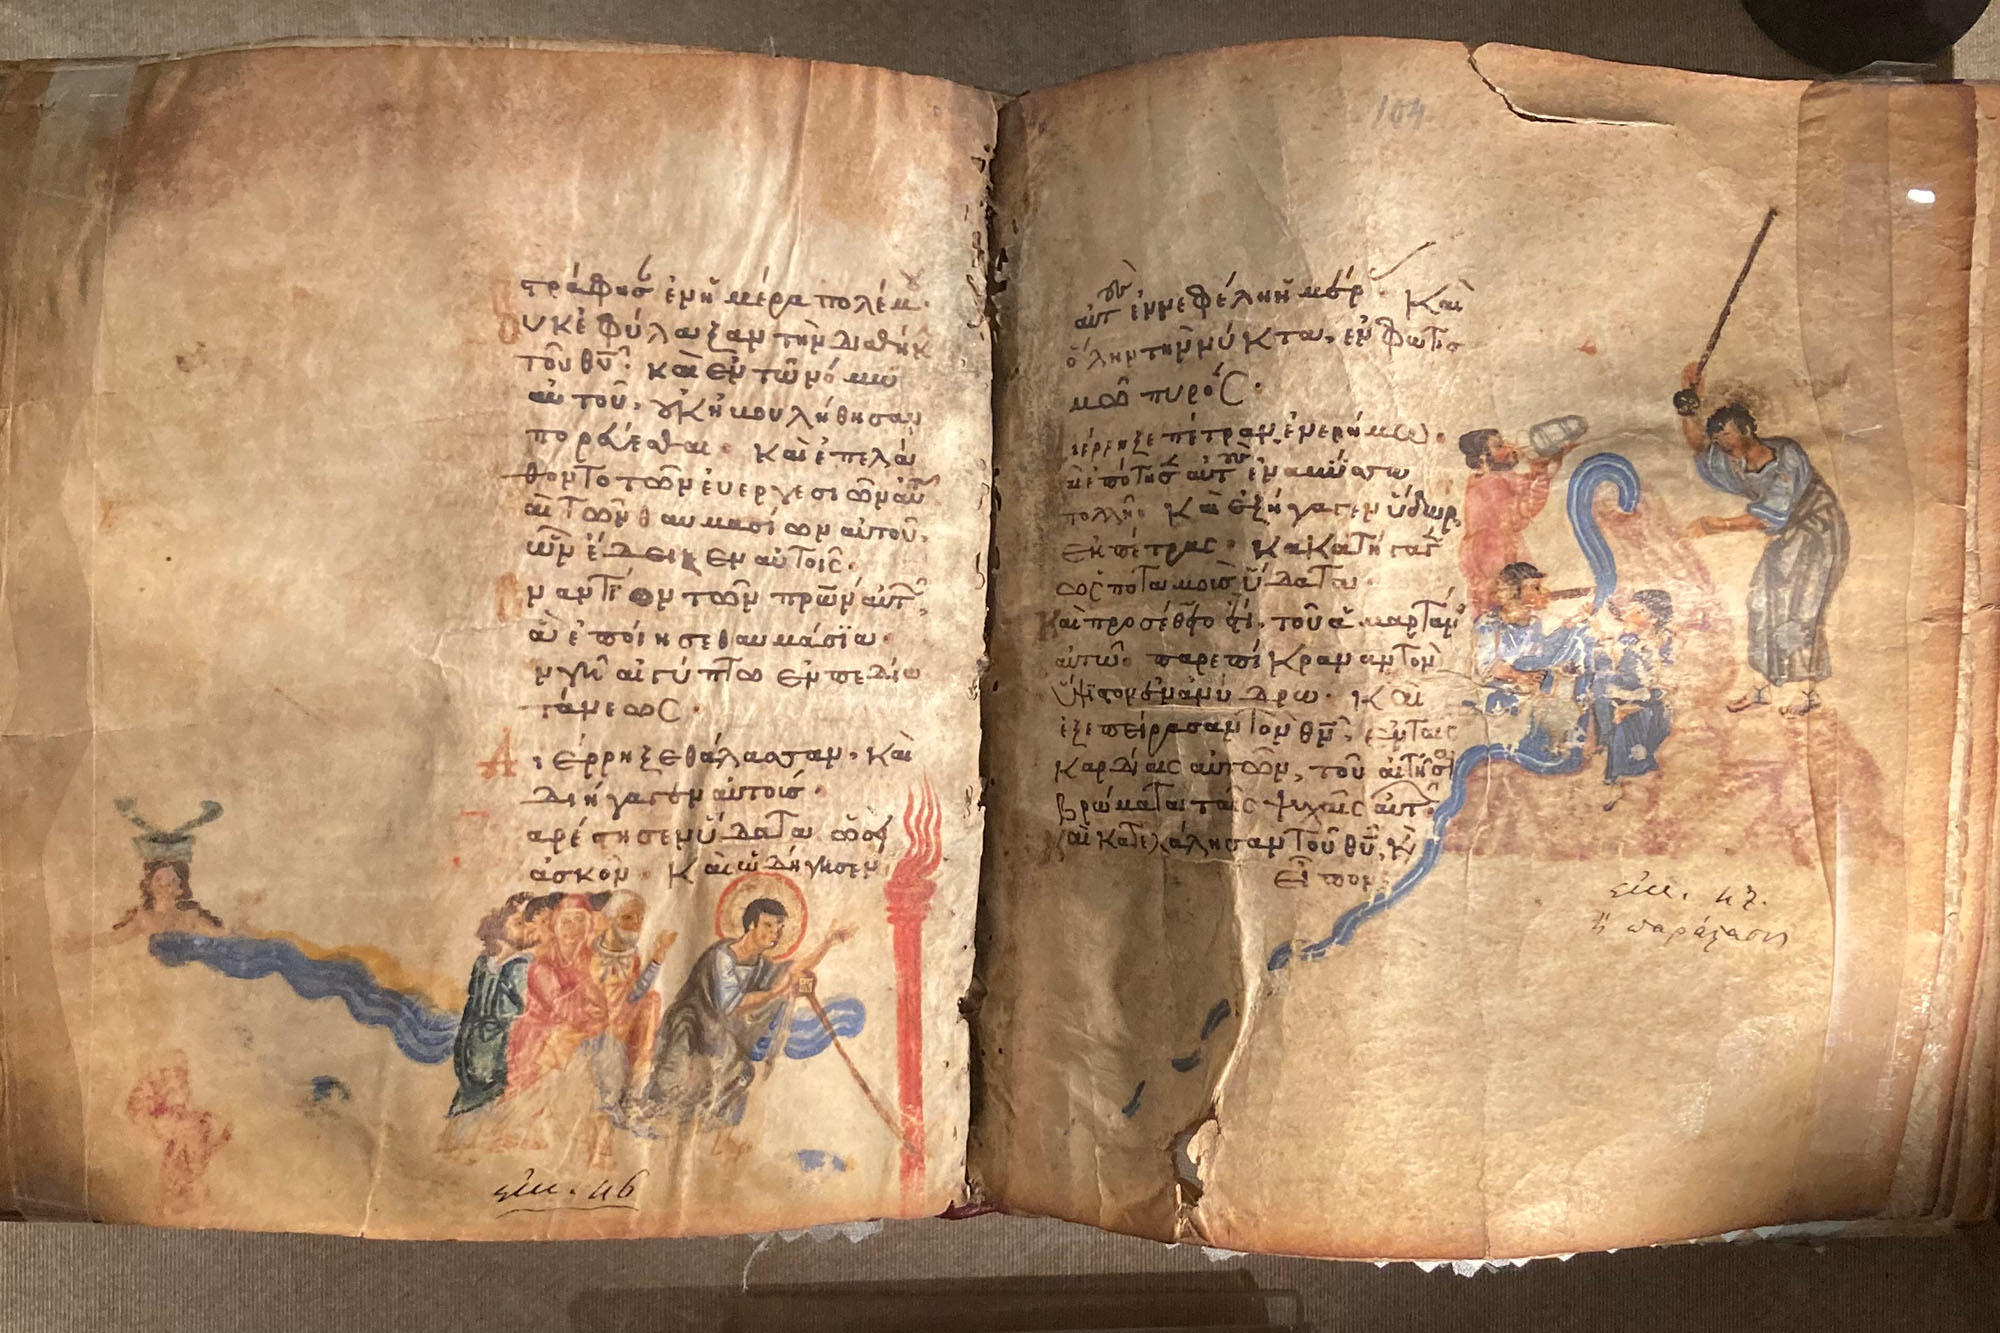 τράφησ ἐν ἡμέρα πολέμου·
υκ ἐφύλαξαν τὴν διαθήκ
τοῦ θῡ· καὶ ἐν τῶ νόμω
αὐτοῦ, οὐκ ἠβουλήθησαν
πορεύεσθαι· Καὶ ἐπελά
θοντο τῶν εὐεργεσιῶν αὐτ
αὶ τῶν θαυμασίων αὐτοῦ,
ὧν ἔδειξεν αὐτοῖς·
ναντίον τῶν πρων αὐτ,
ἃ ἐποίησε θαυμάσϊα·
ν γῆ αἰγύπτω ἐν πεδίω
τάνεωσ·
Διέρρηξε θάλασσαν, καὶ
διήγαγεν αὐτούσ·
αρέστησεν ὕδατα ὡσεὶ
ἀσκόν· Καὶ ὡδήγησεν
104
αὐτοὺσ ἐν νεφέλη ἡμέρ· Καὶ
ὅλην τὴν νύκτα, ἐν φωτισ
μῶ πυρόσ·
ιέρρηξε πέτραν ἐν ἐρήμω·
κὶ ἐπότισ αὐτοὺσ ἐν ἀβύσσω
πολλῆ· Καὶ ἐξήγαγεν ὕδωρ
ἐκ πέτρασ· κὶ κατήγαγ
ὡσ ποταμοὺσ ὕδατα·
αὶ προσέθεντο ἔτι, τοῦ ἁμαρτάν
αὐτῶ· παρεπίκραναν τὸν
ὕψϊστον ἐν ἀνύδρω· Καὶ
ἐξεπείρασαν τὸν θν̄, ἐν ταισ
καρδίαισ αὐτῶν, τοῦ αἰτῆσαι
βρώματα ταῖσ ψυχαῖσ αὐτ
αὶ κατελάλησαν τοῦ θῡ, κὶ
εἶπον·
εἰκ. 46
εἰκ. 47.